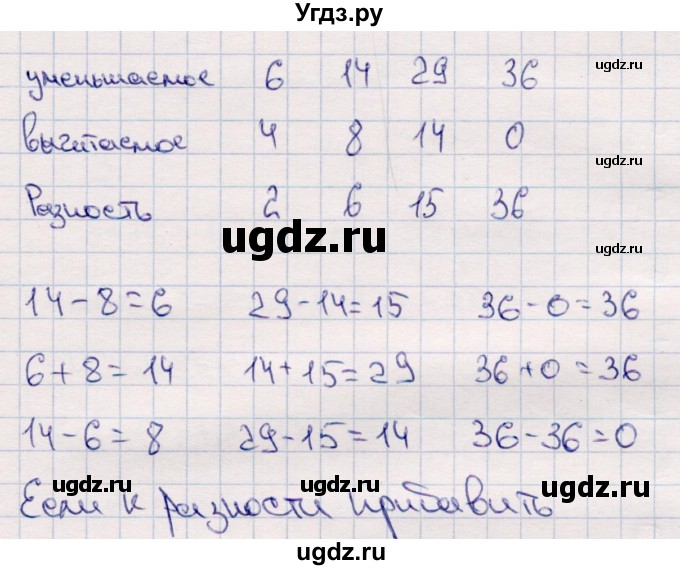 Угдз.ру
уменьшаемое 6 14 29 36
ugdz.ru
вычитаемое 4 8 14 0
ugdz.ru
Разность 2 6 15 36
ugdz.ru
ugdz.ru
14-8=6 29-14=15 36-0=36
ugdz.ru
6+8=14 14+15=29 36+0=36
ugdz.ru
14-6=8 29-15=14 36-36=0
ugdz.ru ugdz.ru ugdz.ru
Если к разности прибавить
ugdz.ru